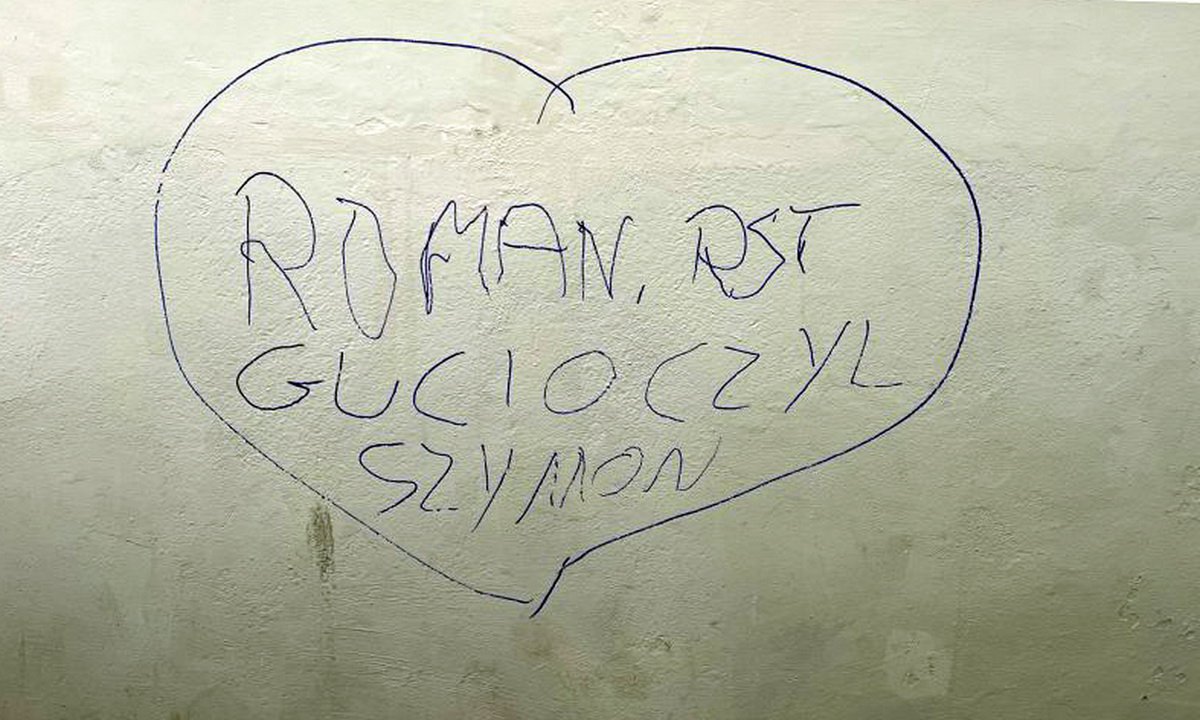 ROMAN, RST
GUCIO CZYL
SZYMON